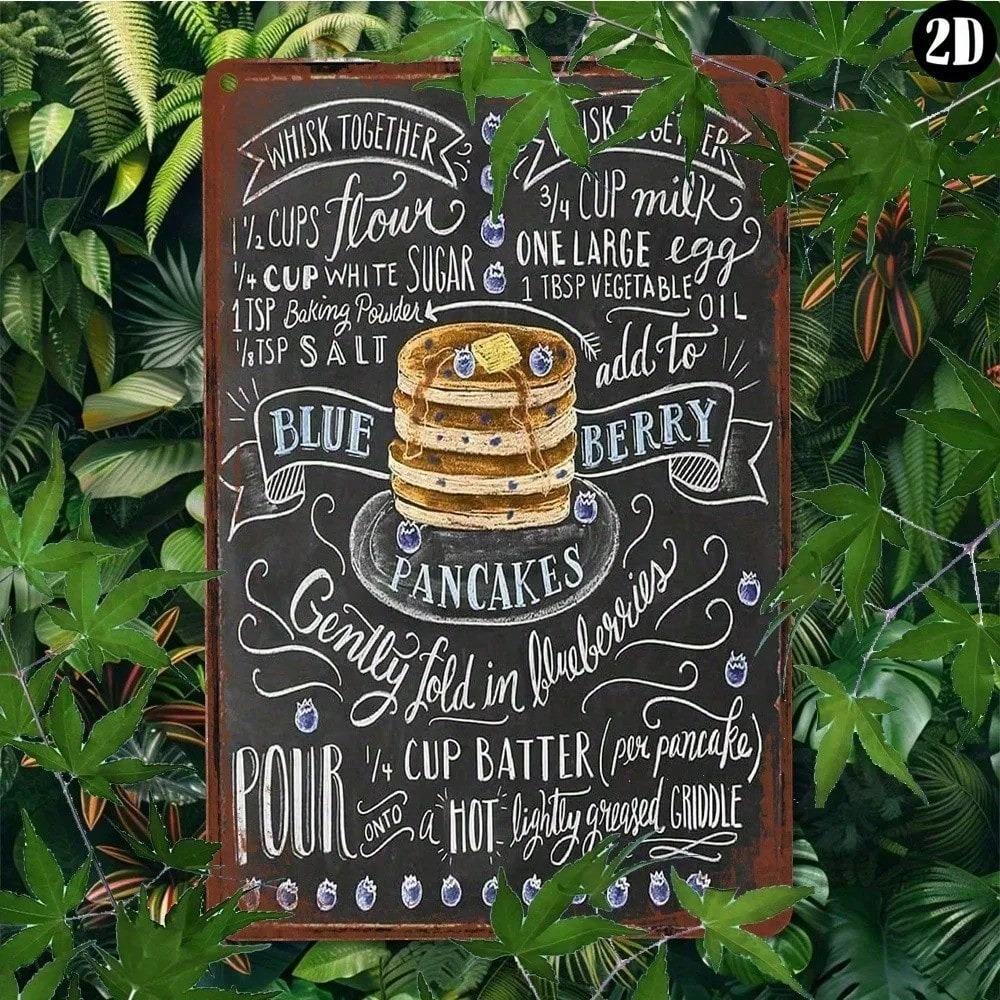 2D
WHISK TOGETHER
1/2 CUPS flour
1/4 CUP WHITE SUGAR
1 TSP Baking Powder
1/8 TSP SALT
WHISK TOGETHER
3/4 CUP milk
ONE LARGE egg
1 TBSP VEGETABLE
OIL
add to
BLUE BERRY
PANCAKES
Gently fold in blueberries
POUR 1/4 CUP BATTER (per pancake)
ONTO a HOT lightly greased GRIDDLE